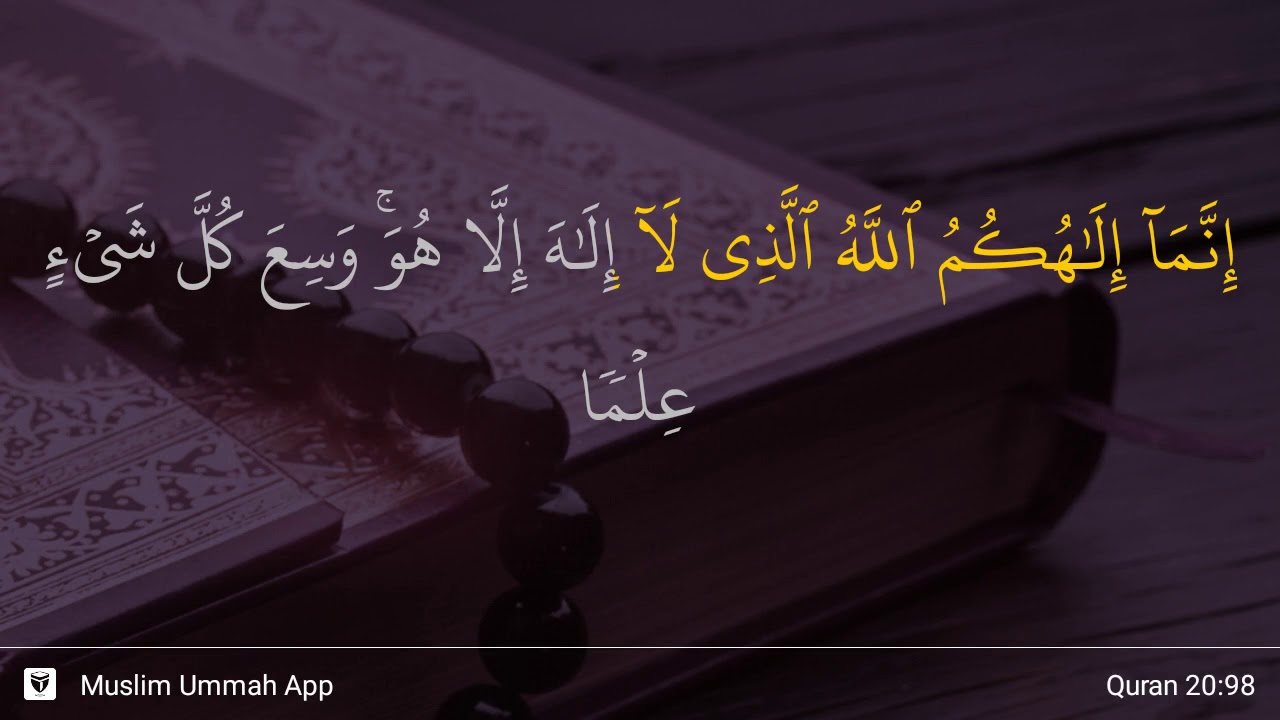 إِنَّمَآ إِلَـٰهُكُمُ ٱللَّهُ ٱلَّذِى لَآ إِلَـٰهَ إِلَّا هُوَ ۚ وَسِعَ كُلَّ شَىْءٍ
عِلْمًا
Muslim Ummah App
Quran 20:98